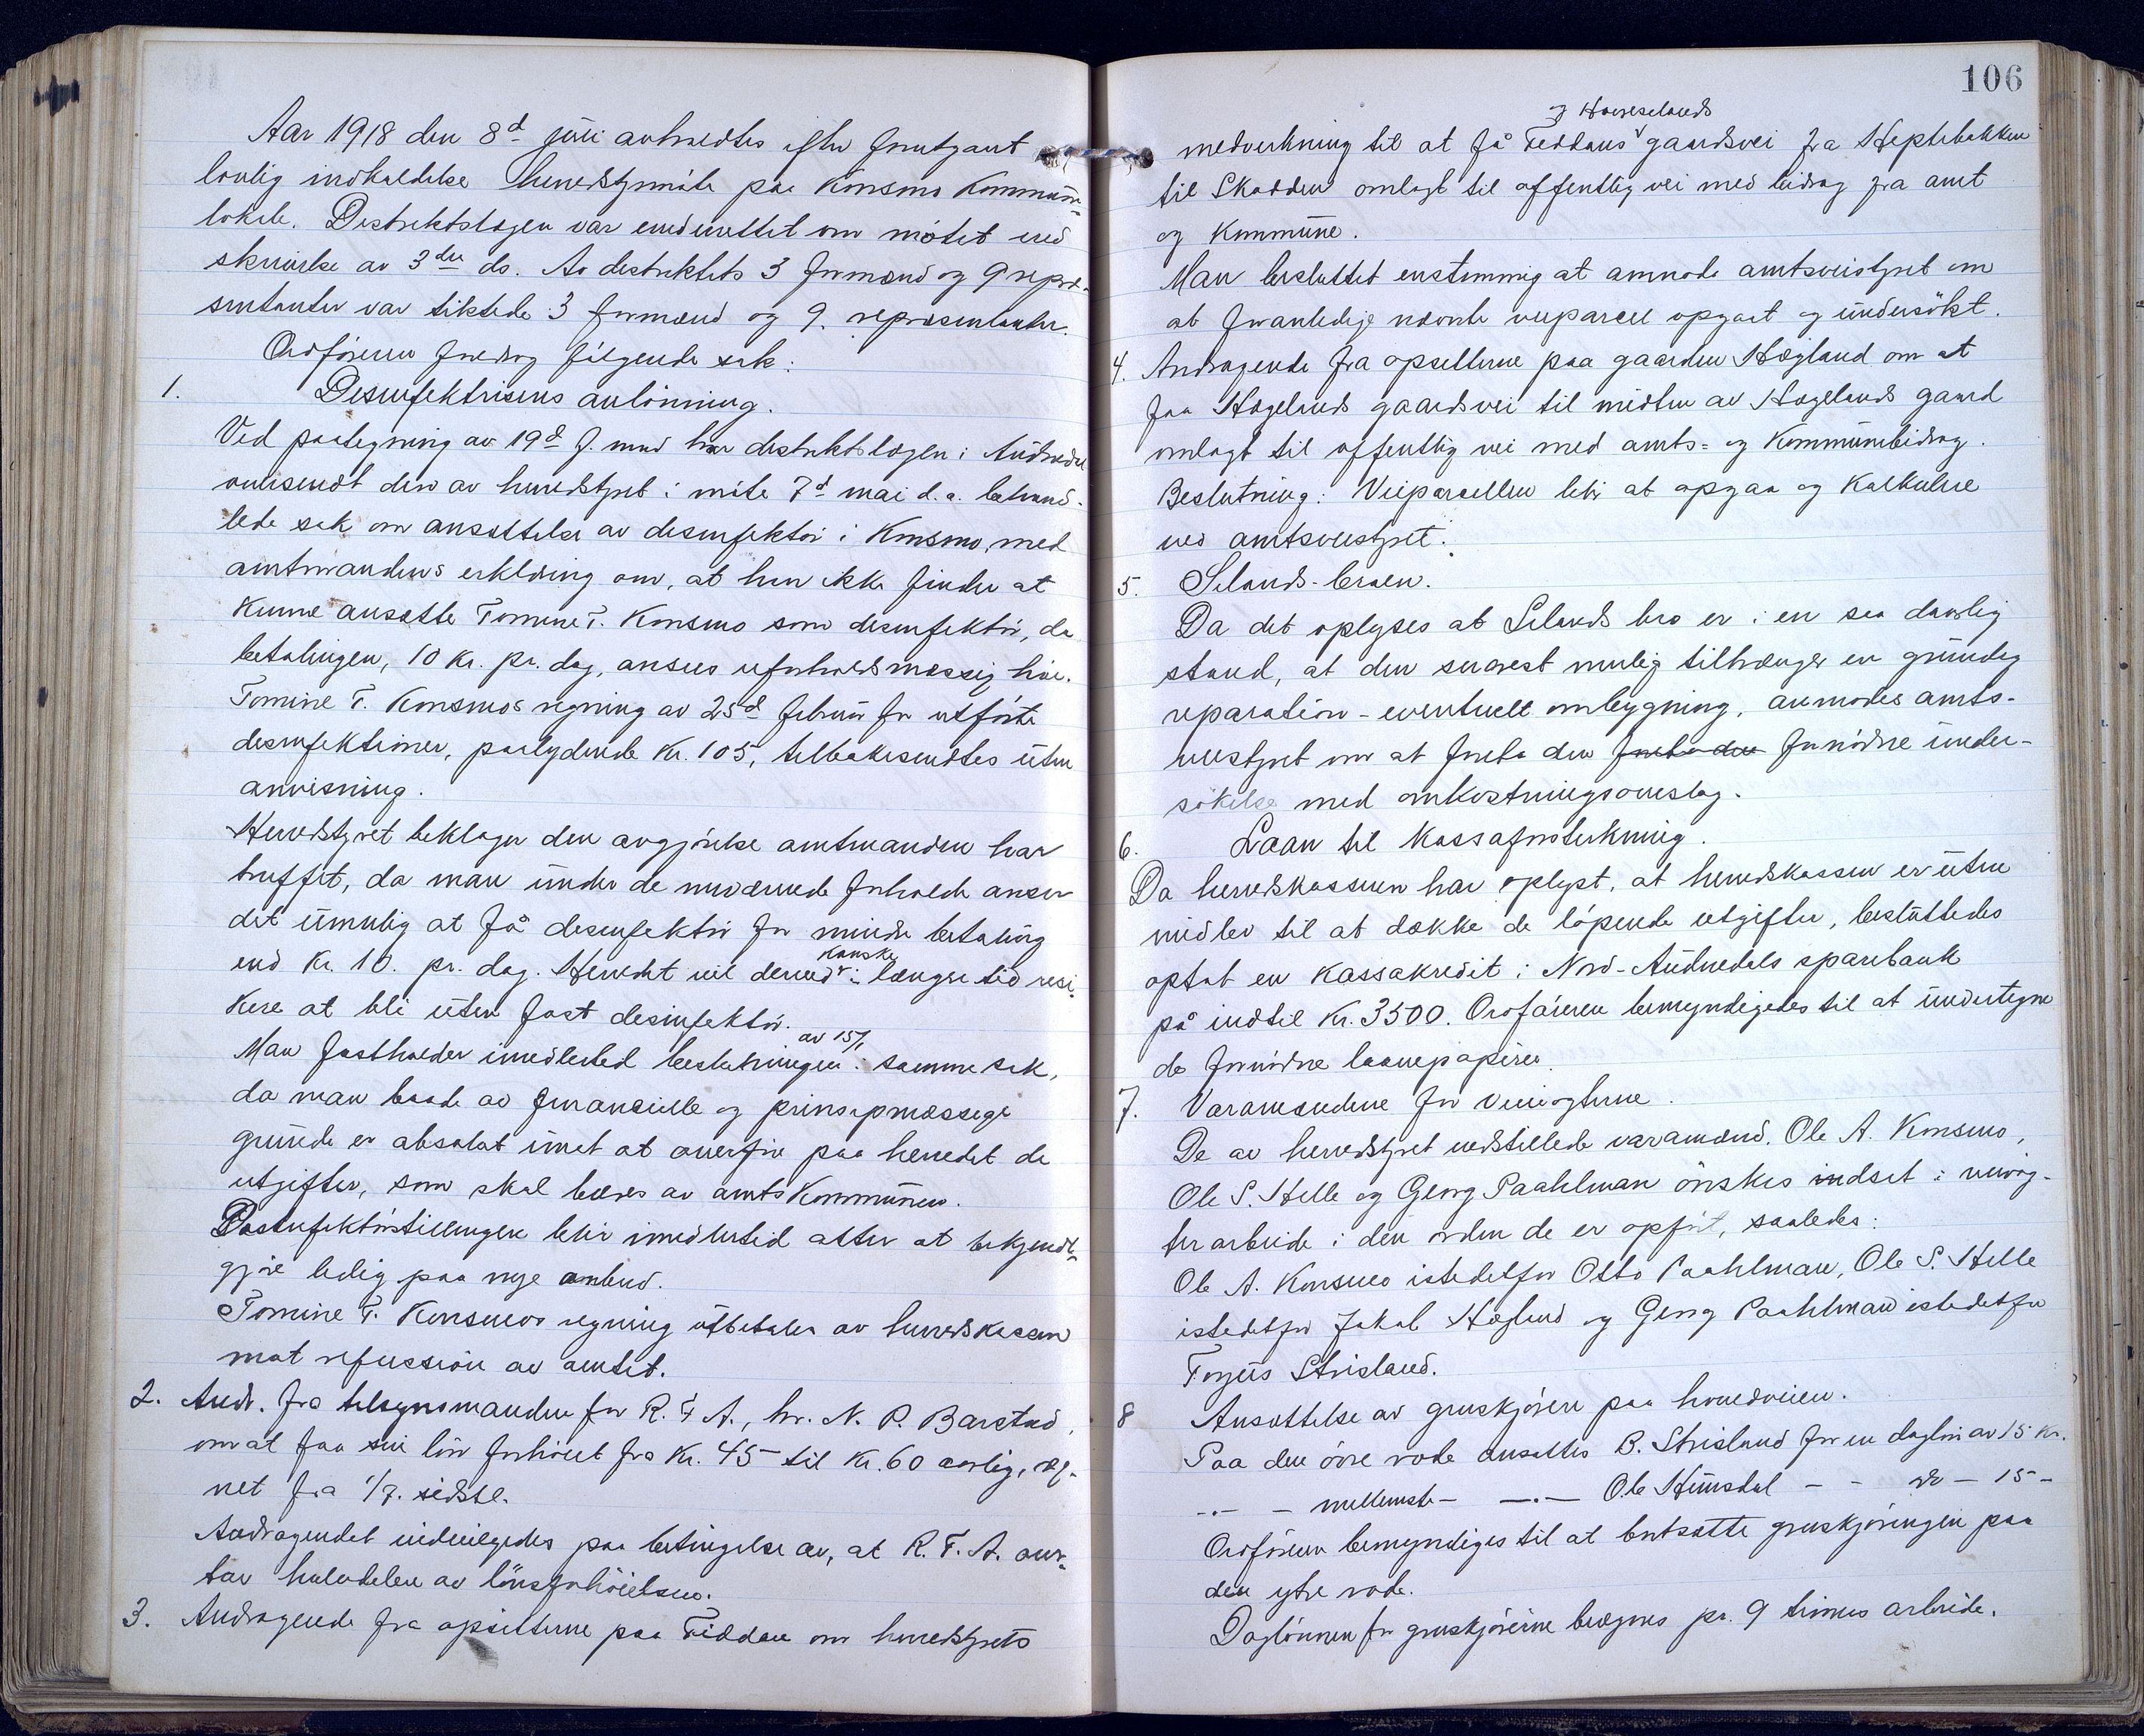 106
Aar 1918 den 8d juli avholdtes efter forutgaat
lovlig indkaldelse herredsstyremöte paa Konsmo Kommune-
lokale. Distriktslægen var underrettet om mötet ved
skrivelse av 3die ds. Av distriktets 3 formænd og 9 repræ-
sentanter var tilstede 3 formænd og 9. repræsentanter.
Ordföreren foredrog fölgende sak:
1. Desinfektrisens avlönning.
Ved paategning av 19d f. mnd har distriktslægen i Audnedal
oversendt den av herredsstyret i möte 7d mai d.a. behand-
lede sak om ansættelse av desinfektör i Konsmo, med
amtmandens erklæring om, at han ikke finder at
kunne ansætte Tomine T. Konsmo som desinfektör, da
betalingen, 10 kr. pr. dag, ansees uforholdsmæssig höi.
Tomine T. Konsmos regning av 25d februar for utförte
desinfektioner, paalydende Kr. 105, tilbakesendtes uten
anvisning.
Herredsstyret beklager den avgjörelse amtmanden har
truffet, da man under de nuværende forholde anser
det umulig at få desinfektör for mindre betaling
end Kr. 10. pr. dag. Herredet vil derved kanske i længre tid resi-
kere at bli uten fast desinfektör.
Man fastholder imidlertid beslutningen av 15/1 i samme sak,
da man baade av finansielle og prinsipmæssige
grunde er absolut imot at overföre paa herredet de
utgifter, som skal bæres av amtskommunen.
Desinfektörstillingen blir imidlertid atter at bekjendt-
gjöre ledig paa nye anbud.
Tomine T. Konsmos regning utbetales av herredskassen
mot refusion av amtet.
2. Andr. fra tilsynsmanden for R. T. A., hr. N. P. Barstad,
om at faa sin lön forhöiet fra Kr. 45 til Kr. 60 aarlig, reg-
net fra 1/7. sidstl.
Andragendet indvilgedes paa betingelse av, at R. T. A. over-
tar halvdelen av lönsforhöielsen.
3. Andragende fra opsitterne paa Fiddan om herredsstyrets
medvirkning til at få Feddans og Hæreselands gaardsvei fra Heptebakken
til Skadden omlagt til offentlig vei med bidrag fra amt
og Kommune.
Man besluttet enstemmig at anmode amtsveistyret om
at foranledige nævnte veiparcel opgaat og undersökt.
4. Andragende fra opsitterne paa gaarden Høgland om at
faa Høgelands gaardsvei til midten av Høgelands gaard
omlagt til offentlig vei med amts- og Kommunebidrag.
Beslutning: Veiparcellen blir at opgaa og kalkulere
ved amtsveistyret.
5. Selands-broen.
Da det oplyses at Selands bro er i en saa daarlig
stand, at den snarest mulig tiltrænger en grundig
reparation - eventuelt ombygning, anmodes amts-
veistyret om at foreta den foreta den fornödne under-
sökelse med omkostningsoverslag.
6. Laan til Kassaforsterkning.
Da herredskasseren har oplyst, at herredskassen er uten
midler til at dække de löpende utgifter, besluttedes
optat en kassakredit i Nord-Audnedals sparebank
på indtil Kr. 3500. Ordföreren bemyndigedes til at undertegne
de fornödne laanepapirer.
7. Varamændene for veivogterne.
De av herredsstyret indstillede varamænd, Ole A. Konsmo,
Ole S. Helle og Georg Paahlman önskes indsat i veivog-
terarbeide i den orden de er opfört, saaledes:
Ole A. Konsmo istedetfor Otto Paahlman, Ole S. Helle
istedetfor Jakob Høgland og Georg Paahlman istedetfor
Torjus Strisland.
8 Ansættelse av gruskjörere paa hovedveien.
Paa den övre rode ansattes B. Strisland for en daglön av 15 kr.
-.- - mellemste - -.- Ole Hunsdal - - do - 15 -
Ordföreren bemyndiges til at bortsætte gruskjöringen paa
den ytre rode.
Daglönnen for gruskjörerne beregnes pr. 9 timers arbeide.